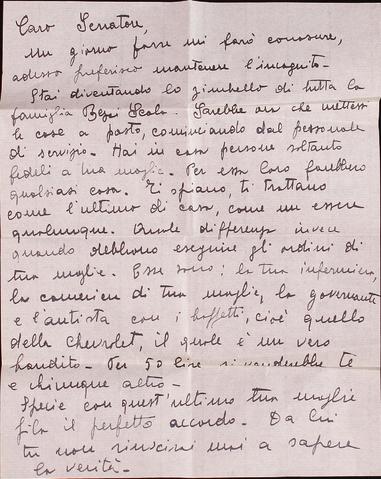 Caro Senatore,
un giorno forse mi farò conoscere,
adesso preferisco mantenere l'incognito -
Stai diventando lo zimbello di tutta la
famiglia Scola. Sarebbe ora che mettessi
le cose a posto, cominciando dal personale
di servizio. Hai in casa persone soltanto
fedeli a tua moglie. Per essa loro farebbero
qualsiasi cosa. Ti spiano, ti trattano
come l'ultimo di casa, come un essere
qualunque. Quale differenza invece
quando debbono eseguire gli ordini di
tua moglie. Esse sono: la tua infermiera,
la cameriera di tua moglie, la governante
e l'autista con i baffetti, cioè quello
della Chevrolet, il quale è un vero
bandito - Per 50 lire si venderebbe te
e chiunque altro -
Specie con quest'ultimo tua moglie
fila il perfetto accordo - Da lui
tu non riuscirai mai a sapere
la verità -